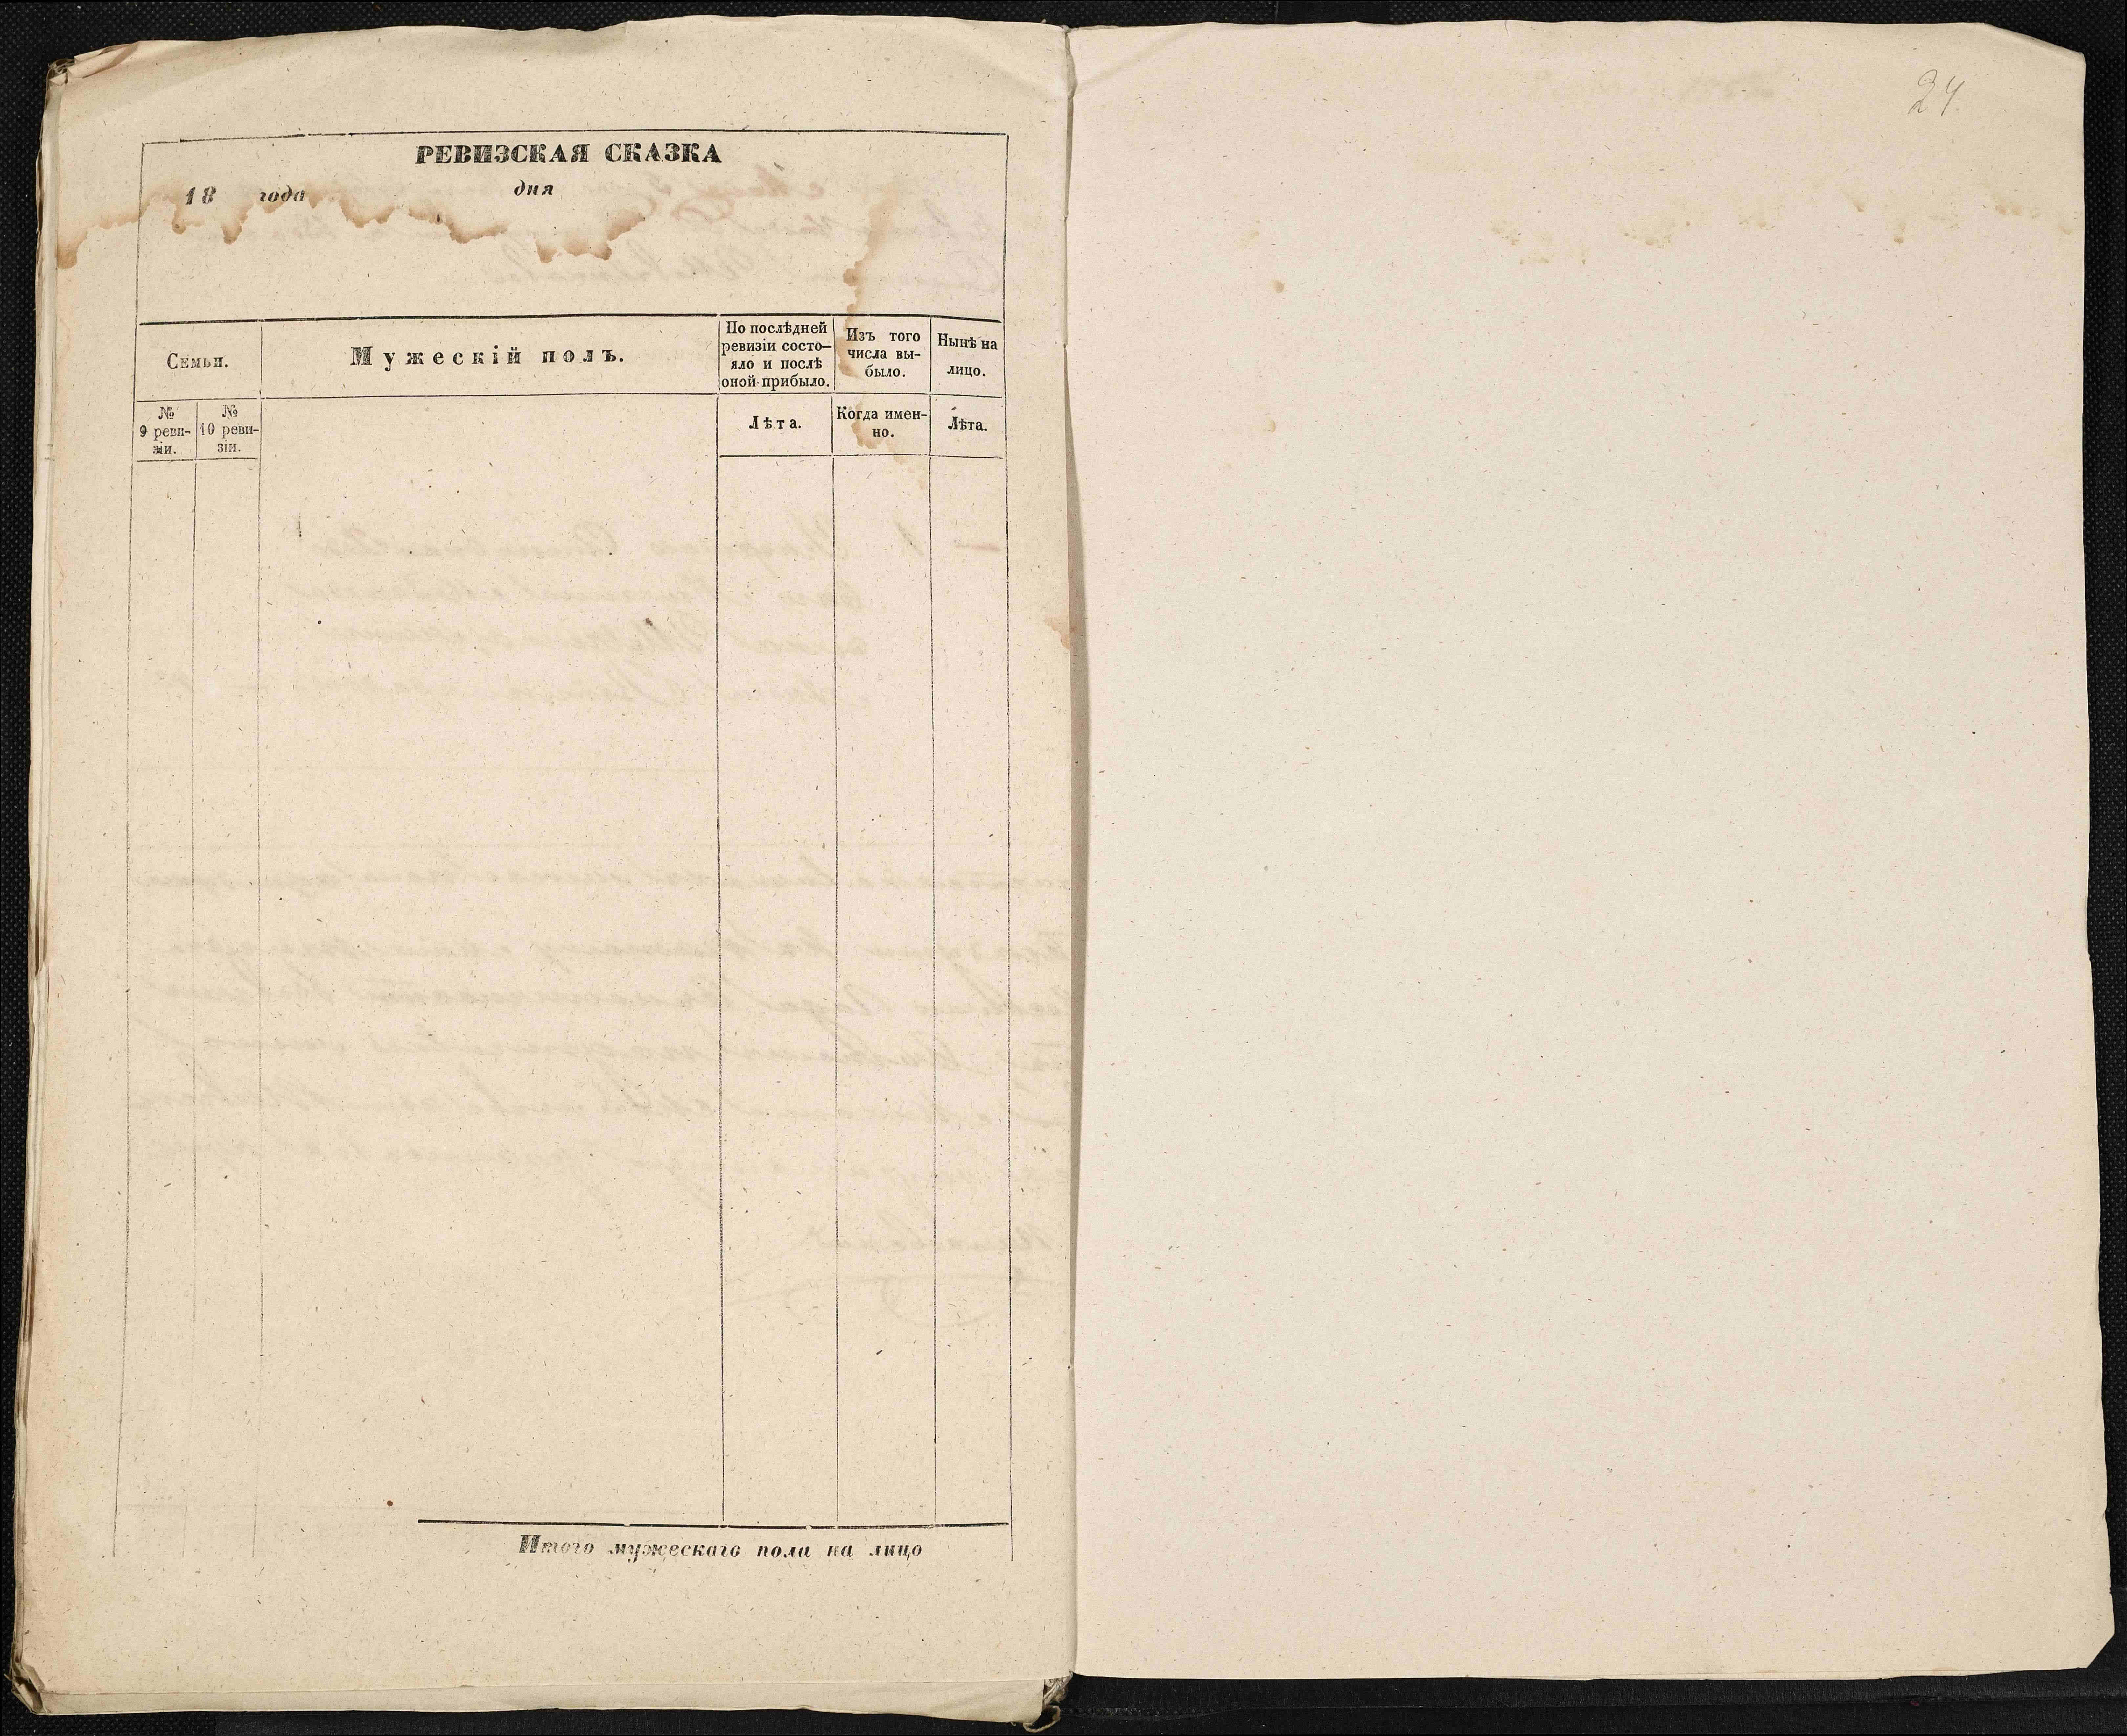 24
РЕВИЗСКАЯ СКАЗКА
18 года дня
Семьи.
Мужескій полъ.
По послѣдней
ревизіи состо-
яло и послѣ
оной прибыло.
Изъ того
числа вы-
было.
Нынѣ на
лицо.
№
9 реви-
зіи.
№
10 реви-
зіи.
Лѣта.
Когда имен-
но.
Лѣта.
Итого мужескаго пола на лицо